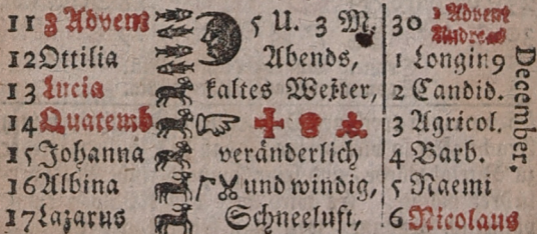 11 3 Advent 5 U. 3 M. 30 1 Advent
Andreas
12 Ottilia Abends, 1 Longin9
13 Lucia kaltes Wetter, 2 Candid.
14 Quatemb 3 Agricol.
15 Johanna veränderlich 4 Barb.
16 Albina und windig, 5 Naemi
17 Lazarus Schneeluft, 6 Nicolaus
December.